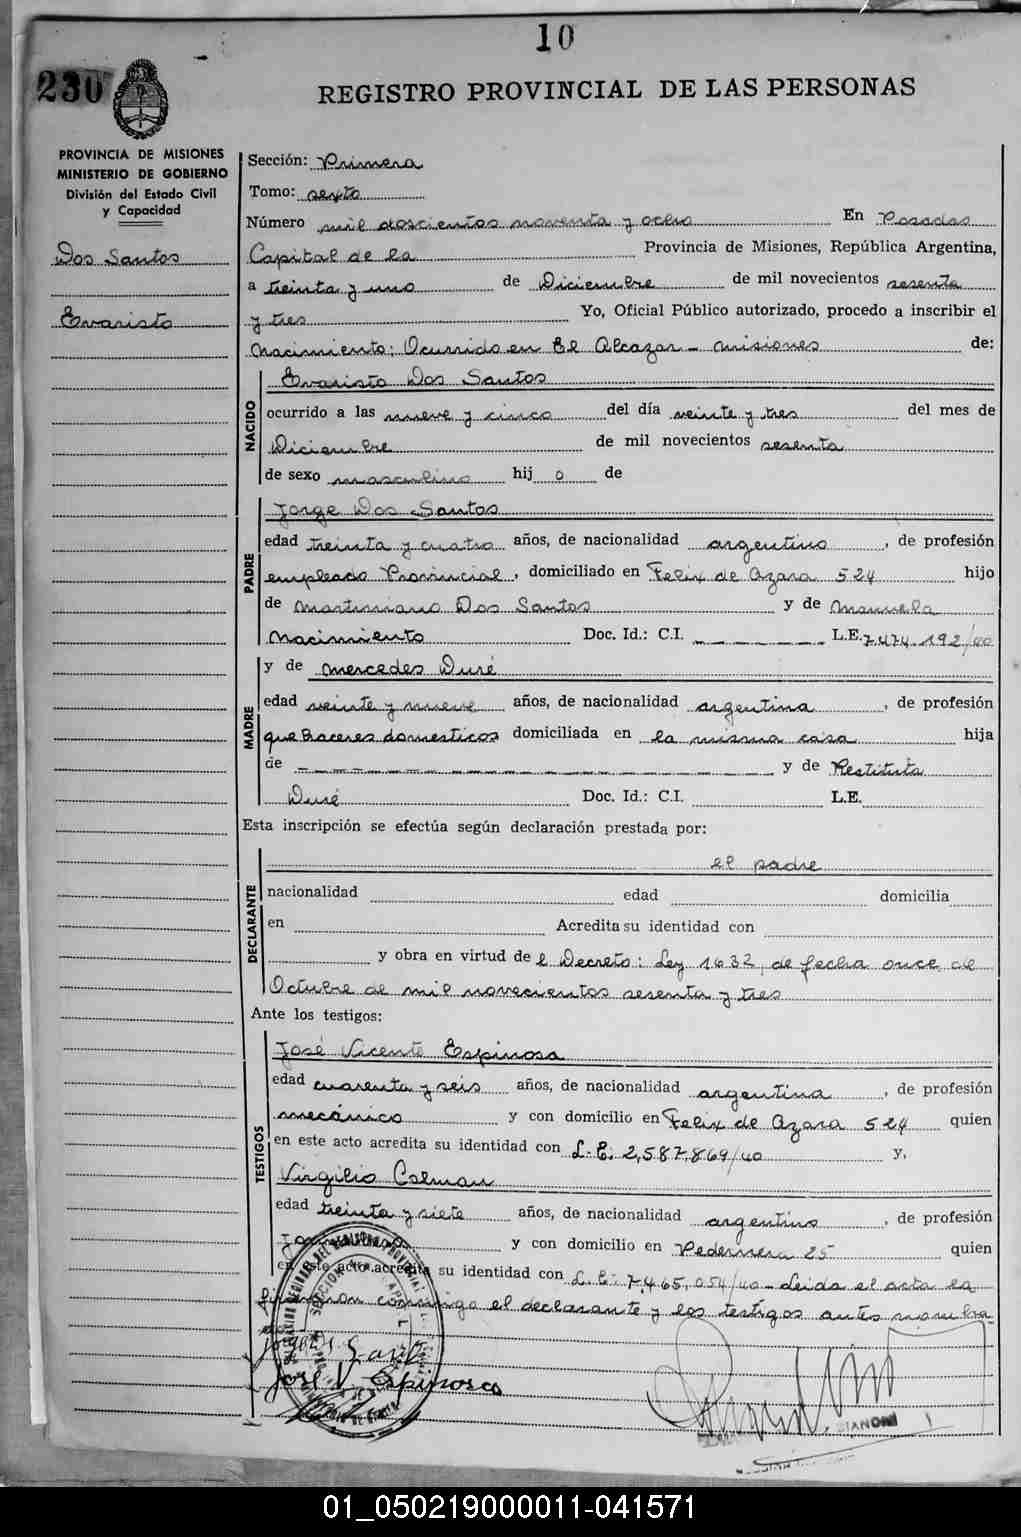 10
230
REGISTRO PROVINCIAL DE LAS PERSONAS
PROVINCIA DE MISIONES
MINISTERIO DE GOBIERNO
División del Estado Civil
y Capacidad
Dos Santos
Evaristo
Sección: Primera
Tomo: sexto
Número mil doscientos noventa y ocho En Posadas
Capital de la Provincia de Misiones, República Argentina,
a treinta y uno de Diciembre de mil novecientos sesenta
y tres Yo, Oficial Público autorizado, procedo a inscribir el
Nacimiento: Ocurrido en El Alcazar - misiones de:
NACIDO
Evaristo Dos Santos
ocurrido a las nueve y cinco del día veinte y tres del mes de
Diciembre de mil novecientos sesenta
de sexo masculino hij o de
PADRE
Jorge Dos Santos
edad treinta y cuatro años, de nacionalidad argentino, de profesión
empleado Provincial, domiciliado en Felix de Azara 524 hijo
de Martimiano Dos Santos y de Manuela
Nacimiento Doc. Id.: C.I. _ _ _ _ _ _ _ L.E. 7.474.192/00
MADRE
y de Mercedes Duré
edad veinte y nueve años, de nacionalidad argentina, de profesión
que haceres domesticos domiciliada en la misma casa hija
de _ _ _ _ _ _ _ _ _ _ _ _ _ _ y de Restituta
Duré Doc. Id.: C.I. L.E.
Esta inscripción se efectúa según declaración prestada por:
DECLARANTE
el padre
nacionalidad edad domicilia
en Acredita su identidad con
y obra en virtud de l Decreto: Ley 1632, de fecha once de
Octubre de mil novecientos sesenta y tres
Ante los testigos:
TESTIGOS
José Vicente Espinosa
edad cuarenta y seis años, de nacionalidad argentina, de profesión
mecánico y con domicilio en Felix de Azara 524 quien
en este acto acredita su identidad con L.E. 2,587.869/40 y,
Virgilio Colman
edad treinta y siete años, de nacionalidad argentino, de profesión
y con domicilio en Pedernera 25 quien
en este acto acredita su identidad con L.E. 7.465,054/40 - Leida el acta la
firmaron conmigo el declarante y los testigos antes nombra
José V. Espinosa
01_050219000011-041571